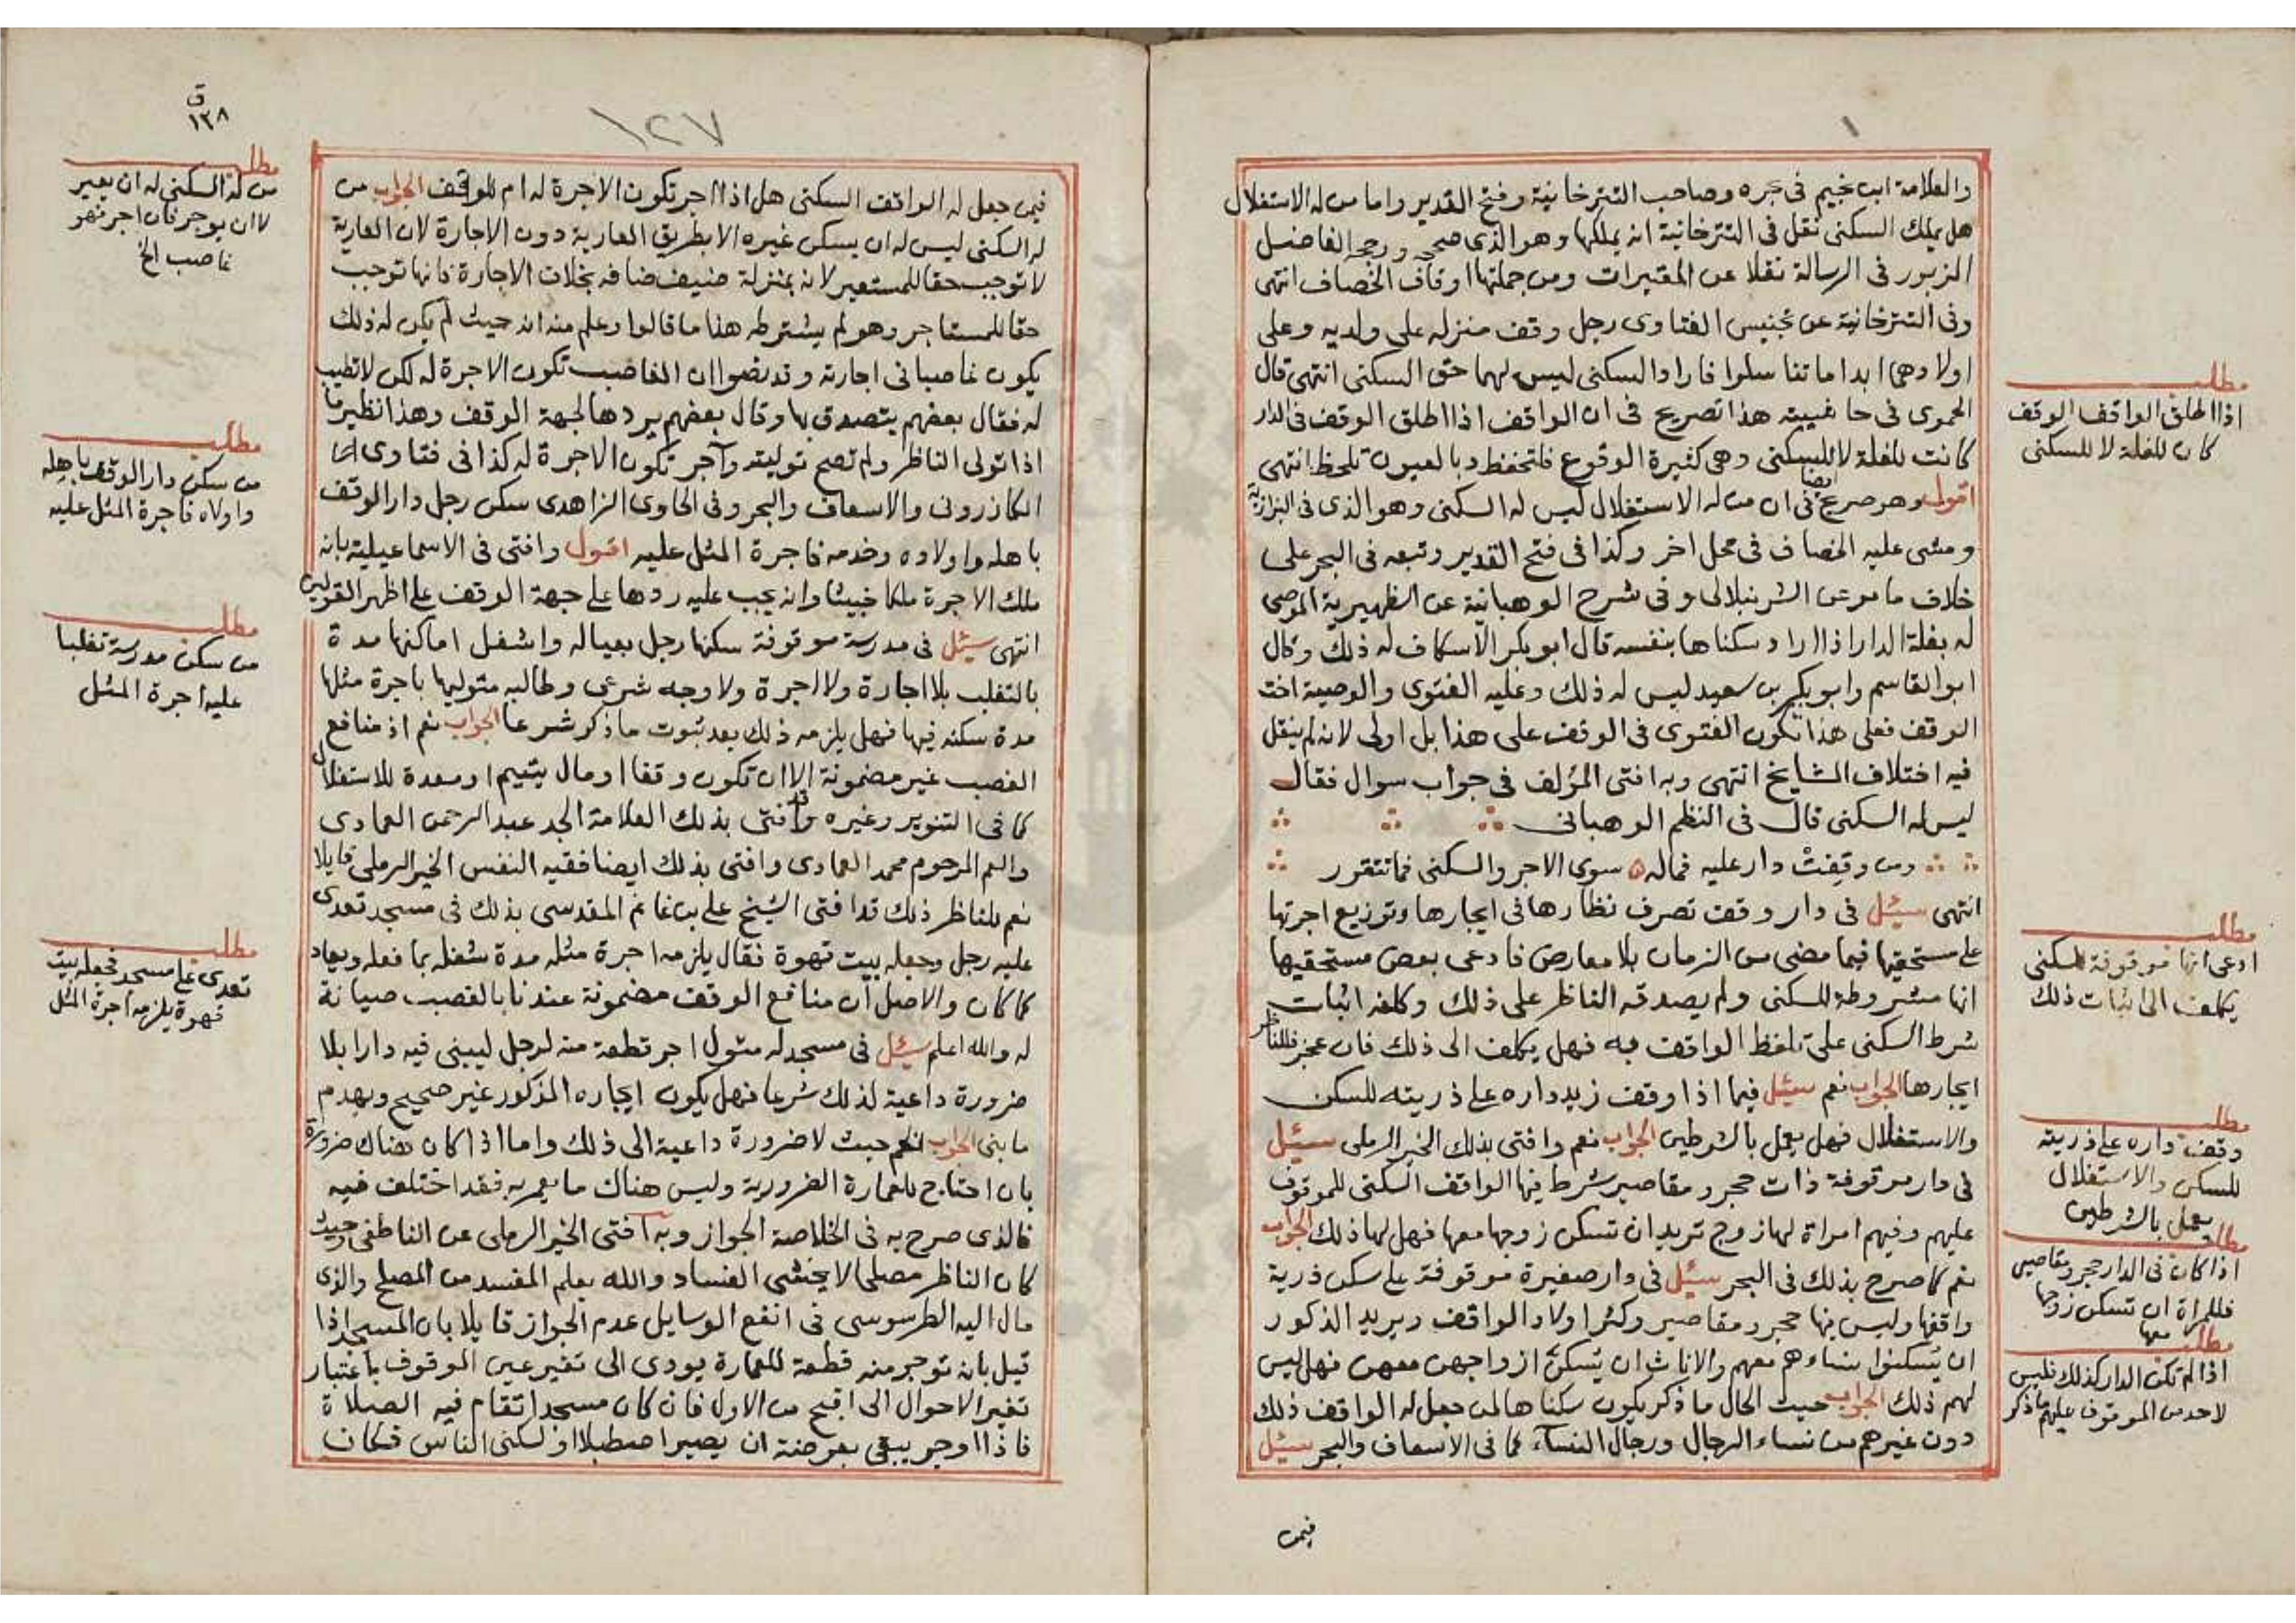 والعلامة ابن نجيم في بحره وصاحب التترخانية وفتح القدير واما من له الاستغلال
هل يملك السكنى نقل في التترخانية انه يملكها وهو الذي صححه ورجحه الفاضل
المزبور في الرسالة نقلا عن المعتبرات ومن جملتها اوقاف الخصاف انتهى
وفي التترخانية عن تجنيس الفتاوى رجل وقف منزله على ولديه وعلى
اولادهما ابدا ما تناسلوا فارادا السكنى ليس لهما حق السكنى انتهى قال
الحموى في حاشيته هذا تصريح في ان الواقف اذا اطلق الوقف في الدار
كانت للغلة لا للسكنى وهى كثيرة الوقوع فلتحفظ وبالعيون تلحظ انتهى
اقول وهو صريح ايضا في ان من له الاستغلال ليس له السكنى وهو الذى في البزازية
ومشى عليه الخصاف في محل اخر وكذا في فتح القدير وتبعه في البحر على
خلاف ما مر عن الشرنبلالى وفي شرح الوهبانية عن الظهيرية الموصى
له بغلة الدار اذا اراد سكناها بنفسه قال ابو بكر الاسكاف له ذلك وقال
ابو القاسم وابو بكر بن سعيد ليس له ذلك وعليه الفتوى والوصية اخت
الوقف فعلى هذا تكون الفتوى في الوقف على هذا بل اولى لانه لم ينقل
فيه اختلاف المشايخ انتهى وبه افتى المؤلف في جواب سوال فقال
ليس له السكنى قال في النظم الوهبانى
ومن وقفت دار عليه فماله ٥ سوى الاجر والسكنى فما تتقرر
انتهى سئل في دار وقف تصرف نظارها في ايجارها وتوزيع اجرتها
على مستحقيها فيما مضى من الزمان بلا معارض فادعى بعض مستحقيها
انها مشروطة للسكنى ولم يصدقه الناظر على ذلك وكلفه اثبات
شرط السكنى على تلفظ الواقف به فهل يكلف الى ذلك فان عجز فللناظر
ايجارها الجواب نعم سئل فيما اذا وقف زيد داره على ذريته للسكن
والاستغلال فهل يعمل بالشرطين الجواب نعم وافتى بذلك الخير الرملى سئل
في دار موقوفة ذات حجر ومقاصير شرط فيها الواقف السكنى للموقوف
عليهم وفيهم امراة لها زوج تريد ان تسكن زوجها معها فهل لها ذلك الجواب
نعم كما صرح بذلك في البحر سئل في دار صغيرة موقوفة على سكن ذرية
واقفها وليس فيها حجر ومقاصير وكثر اولاد الواقف ويريد الذكور
ان يسكنوا نساءهم معهم والاناث ان يسكن ازواجهن معهن فهل ليس
لهم ذلك الجواب حيث الحال ما ذكر يكون سكناها لمن جعل له الواقف ذلك
دون غيرهم من نساء الرجال ورجال النسآء كما في الاسعاف والبحر سئل
فيمن
مطلب
اذا اطلق الواقف الوقف
كان للغلة لا للسكنى
مطلب
ادعى انها موقوفة للسكنى
يكلف الى اثبات ذلك
مطلب
وقف داره على ذريته
للسكن والاستغلال
يعمل بالشرطين
مطلب
اذا كان في الدار حجر ومقاصير
فللمراة ان تسكن زوجها
معها
مطلب
اذا لم تكن الدار كذلك فليس
لاحد من الموقوف عليهم ما ذكر
١٢٧
ق
١٢٨
فيمن جعل له الواقف السكنى هل اذا اجر تكون الاجرة له ام للوقف الجواب من
له السكنى ليس له ان يسكن غيره الا بطريق العارية دون الاجارة لان العارية
لا توجب حقا للمستعير لانه بمنزلة ضيف ضافه بخلاف الاجارة فانها توجب
حقا للمستاجر وهو لم يشترطه هذا ما قالوا وعلم منه انه حيث لم يكن له ذلك
يكون غاصبا في اجارته وقد نصوا ان الغاصب تكون الاجرة له لكن لا تطيب
له فقال بعضهم يتصدق بها وقال بعضهم يردها لجهة الوقف وهذا نظير ما
اذا تولى الناظر ولم تصح توليته وآجر تكون الاجرة له كذا في فتاوى
الكازرونى والاسعاف والبحر وفي الحاوى الزاهدى سكن رجل دار الوقف
باهله واولاده وخدمه فاجرة المثل عليه اقول وافتى في الاسماعيلية بانه
ملك الاجرة ملكا خبيثا وانه يجب عليه ردها على جهة الوقف على اظهر القولين
انتهى سئل في مدرسة موقوفة سكنها رجل بعياله واشغل اماكنها مدة
بالتغلب بلا اجارة ولا اجرة ولا وجه شرعى وطالبه متوليها باجرة مثلها
مدة سكنه فيها فهل يلزمه ذلك بعد ثبوت ما ذكر شرعا الجواب نعم اذ منافع
الغصب غير مضمونة الا ان تكون وقفا او مال يتيم او معدة للاستغلال
كما في التنوير وغيره وقد افتى بذلك العلامة الجد عبد الرحمن العمادى
والعم المرحوم محمد العمادى وافتى بذلك ايضا فقيه النفس الخير الرملى قايلا
نعم للناظر ذلك قد افتى الشيخ على بن غانم المقدسى بذلك في مسجد تعدى
عليه رجل وجعله بيت قهوة فقال يلزمه اجرة مثله مدة شغله بما فعله ويعاد
كما كان والاصل ان منافع الوقف مضمونة عندنا بالغصب صيانة
له والله اعلم سئل في مسجد له متول اجر قطعة منه لرجل ليبنى فيه دارا بلا
ضرورة داعية لذلك شرعا فهل يكون ايجاره المذكور غير صحيح ويهدم
ما بنى الجواب نعم حيث لا ضرورة داعية الى ذلك واما اذا كان هناك ضرورة
بان احتاج للعمارة الضرورية وليس هناك ما يعمر به فقد اختلف فيه
فالذى صرح به في الخلاصة الجواز وبه افتى الخير الرملى عن الناطفى حيث
كان الناظر مصلحا لا يخشى الفساد والله يعلم المفسد من المصلح والذى
مال اليه الطرسوسى في انفع الوسايل عدم الجواز قايلا بان المسجد اذا
قيل بانه توجر منه قطعة للعمارة يودى الى تغير عين الموقوف باعتبار
تغير الاحوال الى اقبح من الاول فان كان مسجدا تقام فيه الصلاة
فاذا اوجر يبقى بعرضة ان يصير اصطبلا او لسكنى الناس فكان
مطلب
من له السكنى له ان يعير
لا ان يوجر فان اجر فهو
غاصب الخ
مطلب
من سكن دار الوقف باهله
واولاده فاجرة المثل عليه
مطلب
من سكن مدرسة تغلبا
عليه اجرة المثل
مطلب
تعدى على مسجد فجعله بيت
قهوة يلزمه اجرة المثل